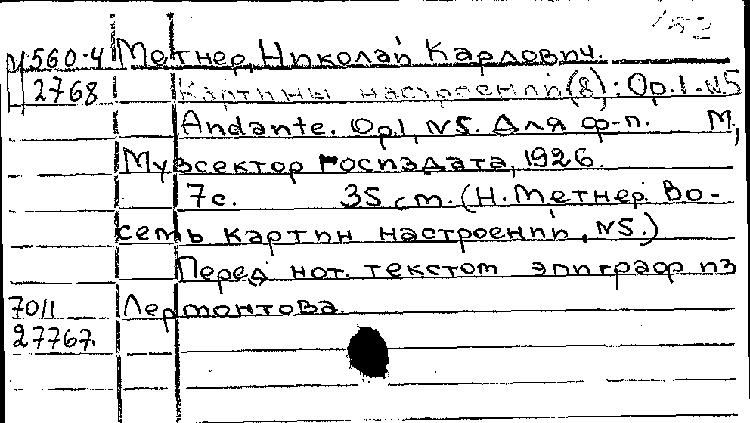 М560-4 Метнер, Николай Карлович.
2768 Картины настроений (8): Op.1. №5
Andante. Op1, №5. Для ф-п. М,
Музсектор Госиздата, 1926.
7с. 35 см. (Н. Метнер. Во-
семь картин настроений, №5.)
Перед нот. текстом эпиграф из
70/1 Лермонтова.
27767.